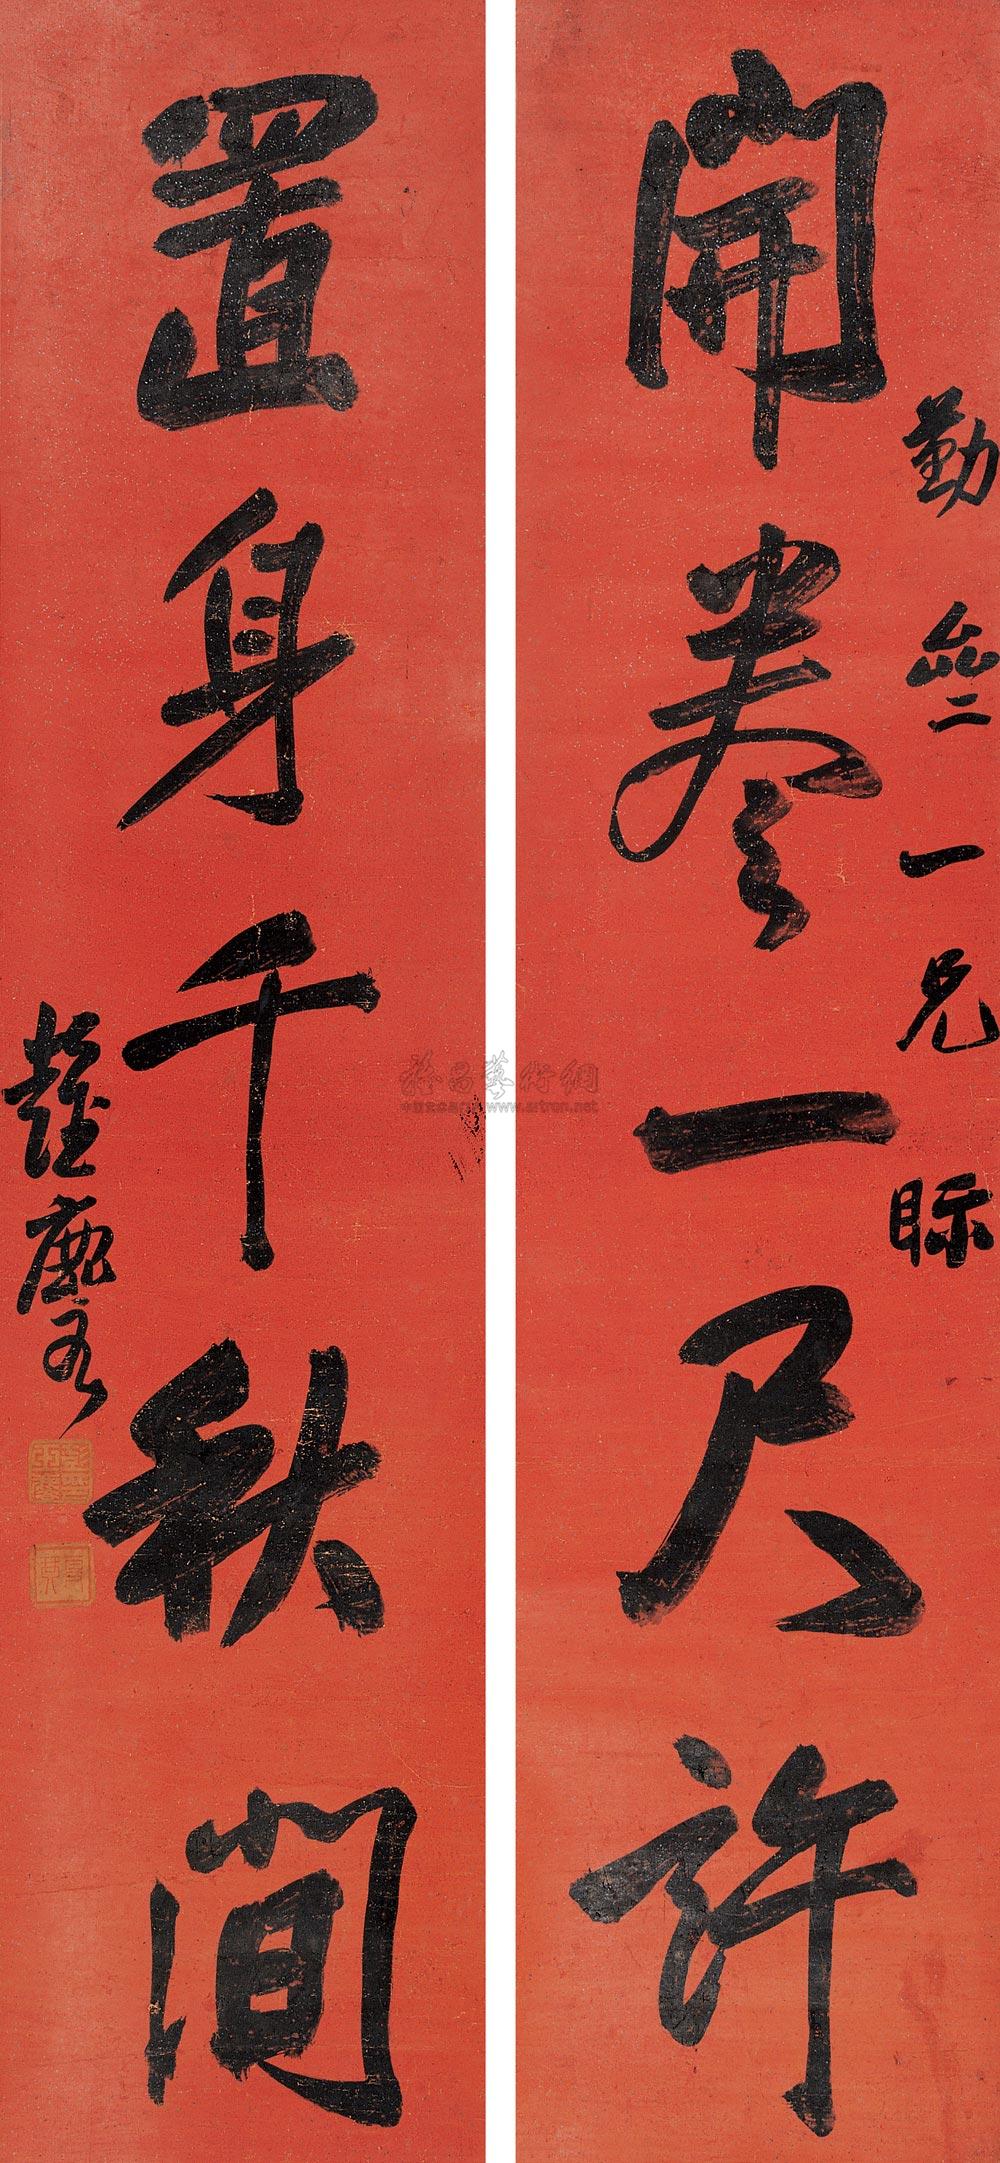 開卷一尺許
勤
一兄
眎
置身千秋間
彭玉麐
雅昌藝術網
www.artron.net